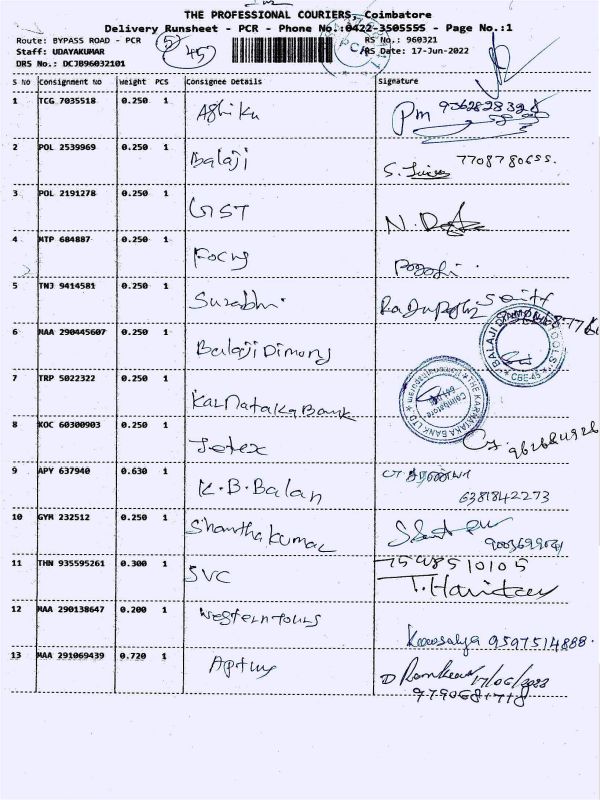 THE PROFESSIONAL COURIERS, Coimbatore
Delivery Runsheet - PCR - Phone No.:0422-3505555 - Page No.:1
Route: BYPASS ROAD - PCR
RS No.: 960321
Staff: UDAYAKUMAR
45
RS Date: 17-Jun-2022
DRS No.: DCJB96032101
S No Consignment No Weight PCS Consignee Details Signature
1 TCG 7035518 0.250 1
Pm
2 POL 2539969 0.250 1 Balaji
S. 7708780655.
3 POL 2191278 0.250 1 GST
4 NTP 684887 0.250 1 Focus
5 TNJ 9414581 0.250 1 Surabhi.
6 MAA 290445607 0.250 1 Balaji Dimong
BALAJI DIAMOND TOOLS
CBE-45
7 TRP 5022322 0.250 1 Karnataka Bank
THE KARNATAKA BANK LTD
Coimbatore
8 KOC 60300903 0.250 1 Jotex
9 APY 637940 0.630 1 K.B.Balan
6381842273
10 GYM 232512 0.250 1 Shanthakumar
11 THN 935595261 0.300 1 SVC
7598510105
12 MAA 290138647 0.200 1 Western tours
Kowsalya 9597514888.
13 MAA 291069439 0.720 1
D 17/06/2022
9790681718